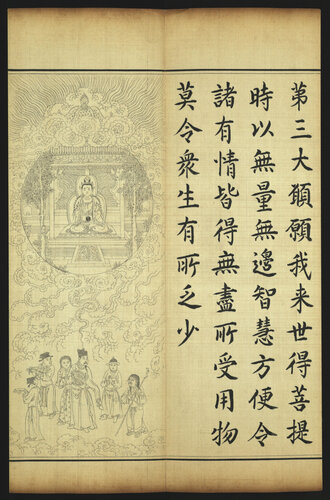 第三大願願我来世得菩提
時以無量無邊智慧方便令
諸有情皆得無盡所受用物
莫令衆生有所乏少